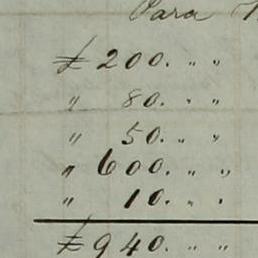 Para
£ 200. " "
" 80. " "
" 50. " "
" 600. " "
" 10. " "
£ 940. " "